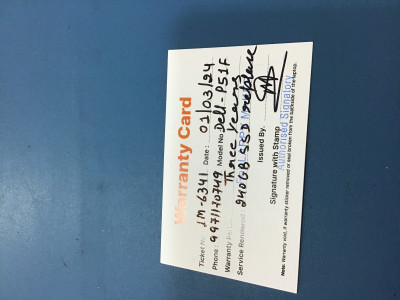 Warranty Card
Ticket No. JM-6341 Date : 01/03/24
Phone : 9971170749 Model No. Dell-P51F
Warranty Three years
Service Rendered 240GB SSD replace
Issued By.
Signature with Stamp
Authorised Signatory
Note: Warranty void, if warranty sticker removed or seal broken from the backside of the laptop.